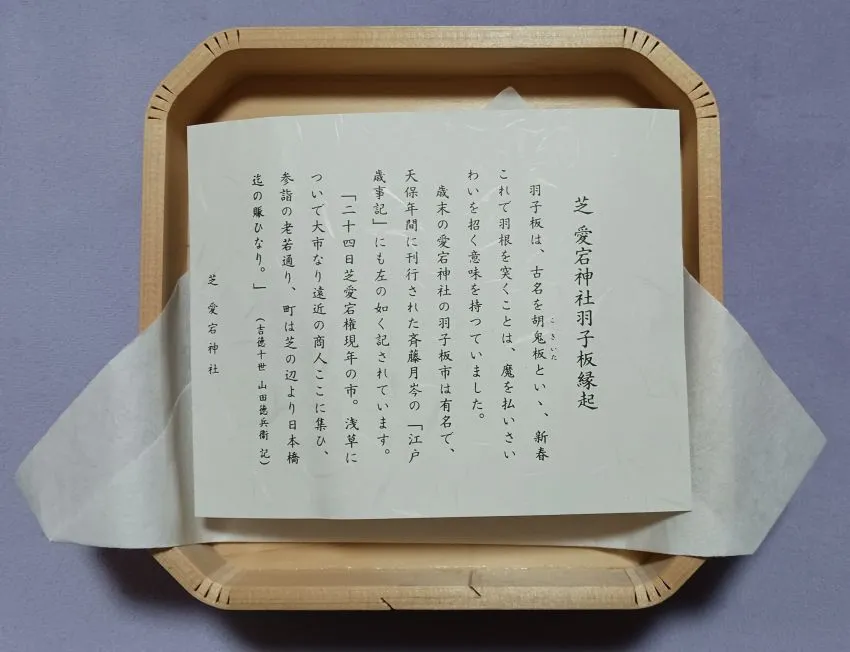 芝 愛宕神社羽子板縁起
羽子板は、古名を胡鬼板といゝ、新春
こきいた
これで羽根を突くことは、魔を払いさい
わいを招く意味を持つていました。
歳末の愛宕神社の羽子板市は有名で、
天保年間に刊行された斉藤月岑の「江戸
歳事記」にも左の如く記されています。
「二十四日芝愛宕権現年の市。浅草に
ついで大市なり遠近の商人ここに集ひ、
参詣の老若通り、町は芝の辺より日本橋
迄の賑ひなり。」（吉徳十世 山田徳兵衛 記）
芝 愛宕神社